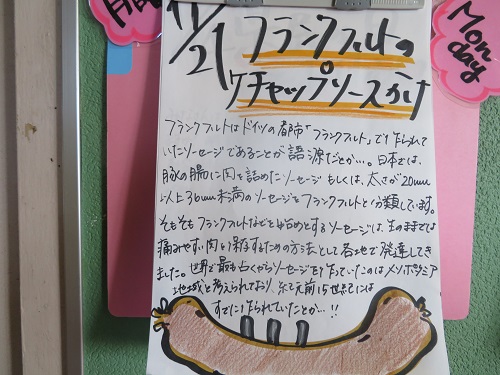 11/21 フランクフルトの
ケチャップソースがけ
Mon
day
フランクフルトはドイツの都市「フランクフルト」で作られて
いたソーセージであることが語源だとか…。日本では、
豚の腸に肉を詰めたソーセージもしくは、太さが20mm
以上36mm未満のソーセージをフランクフルトと分類しています。
そもそもフランクフルトなどを始めとするソーセージは、生のままでは
痛みやすい肉を保存するための方法として各地で発達してき
ました。世界で最も古くからソーセージを作っていたのはメソポタミア
地域と考えられており、紀元前15世紀には
すでに作られていたとか…!!